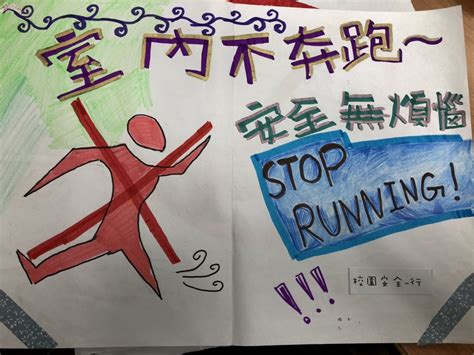 室內不奔跑~
安全無煩惱
STOP
RUNNING!
!!!
校園安全-行